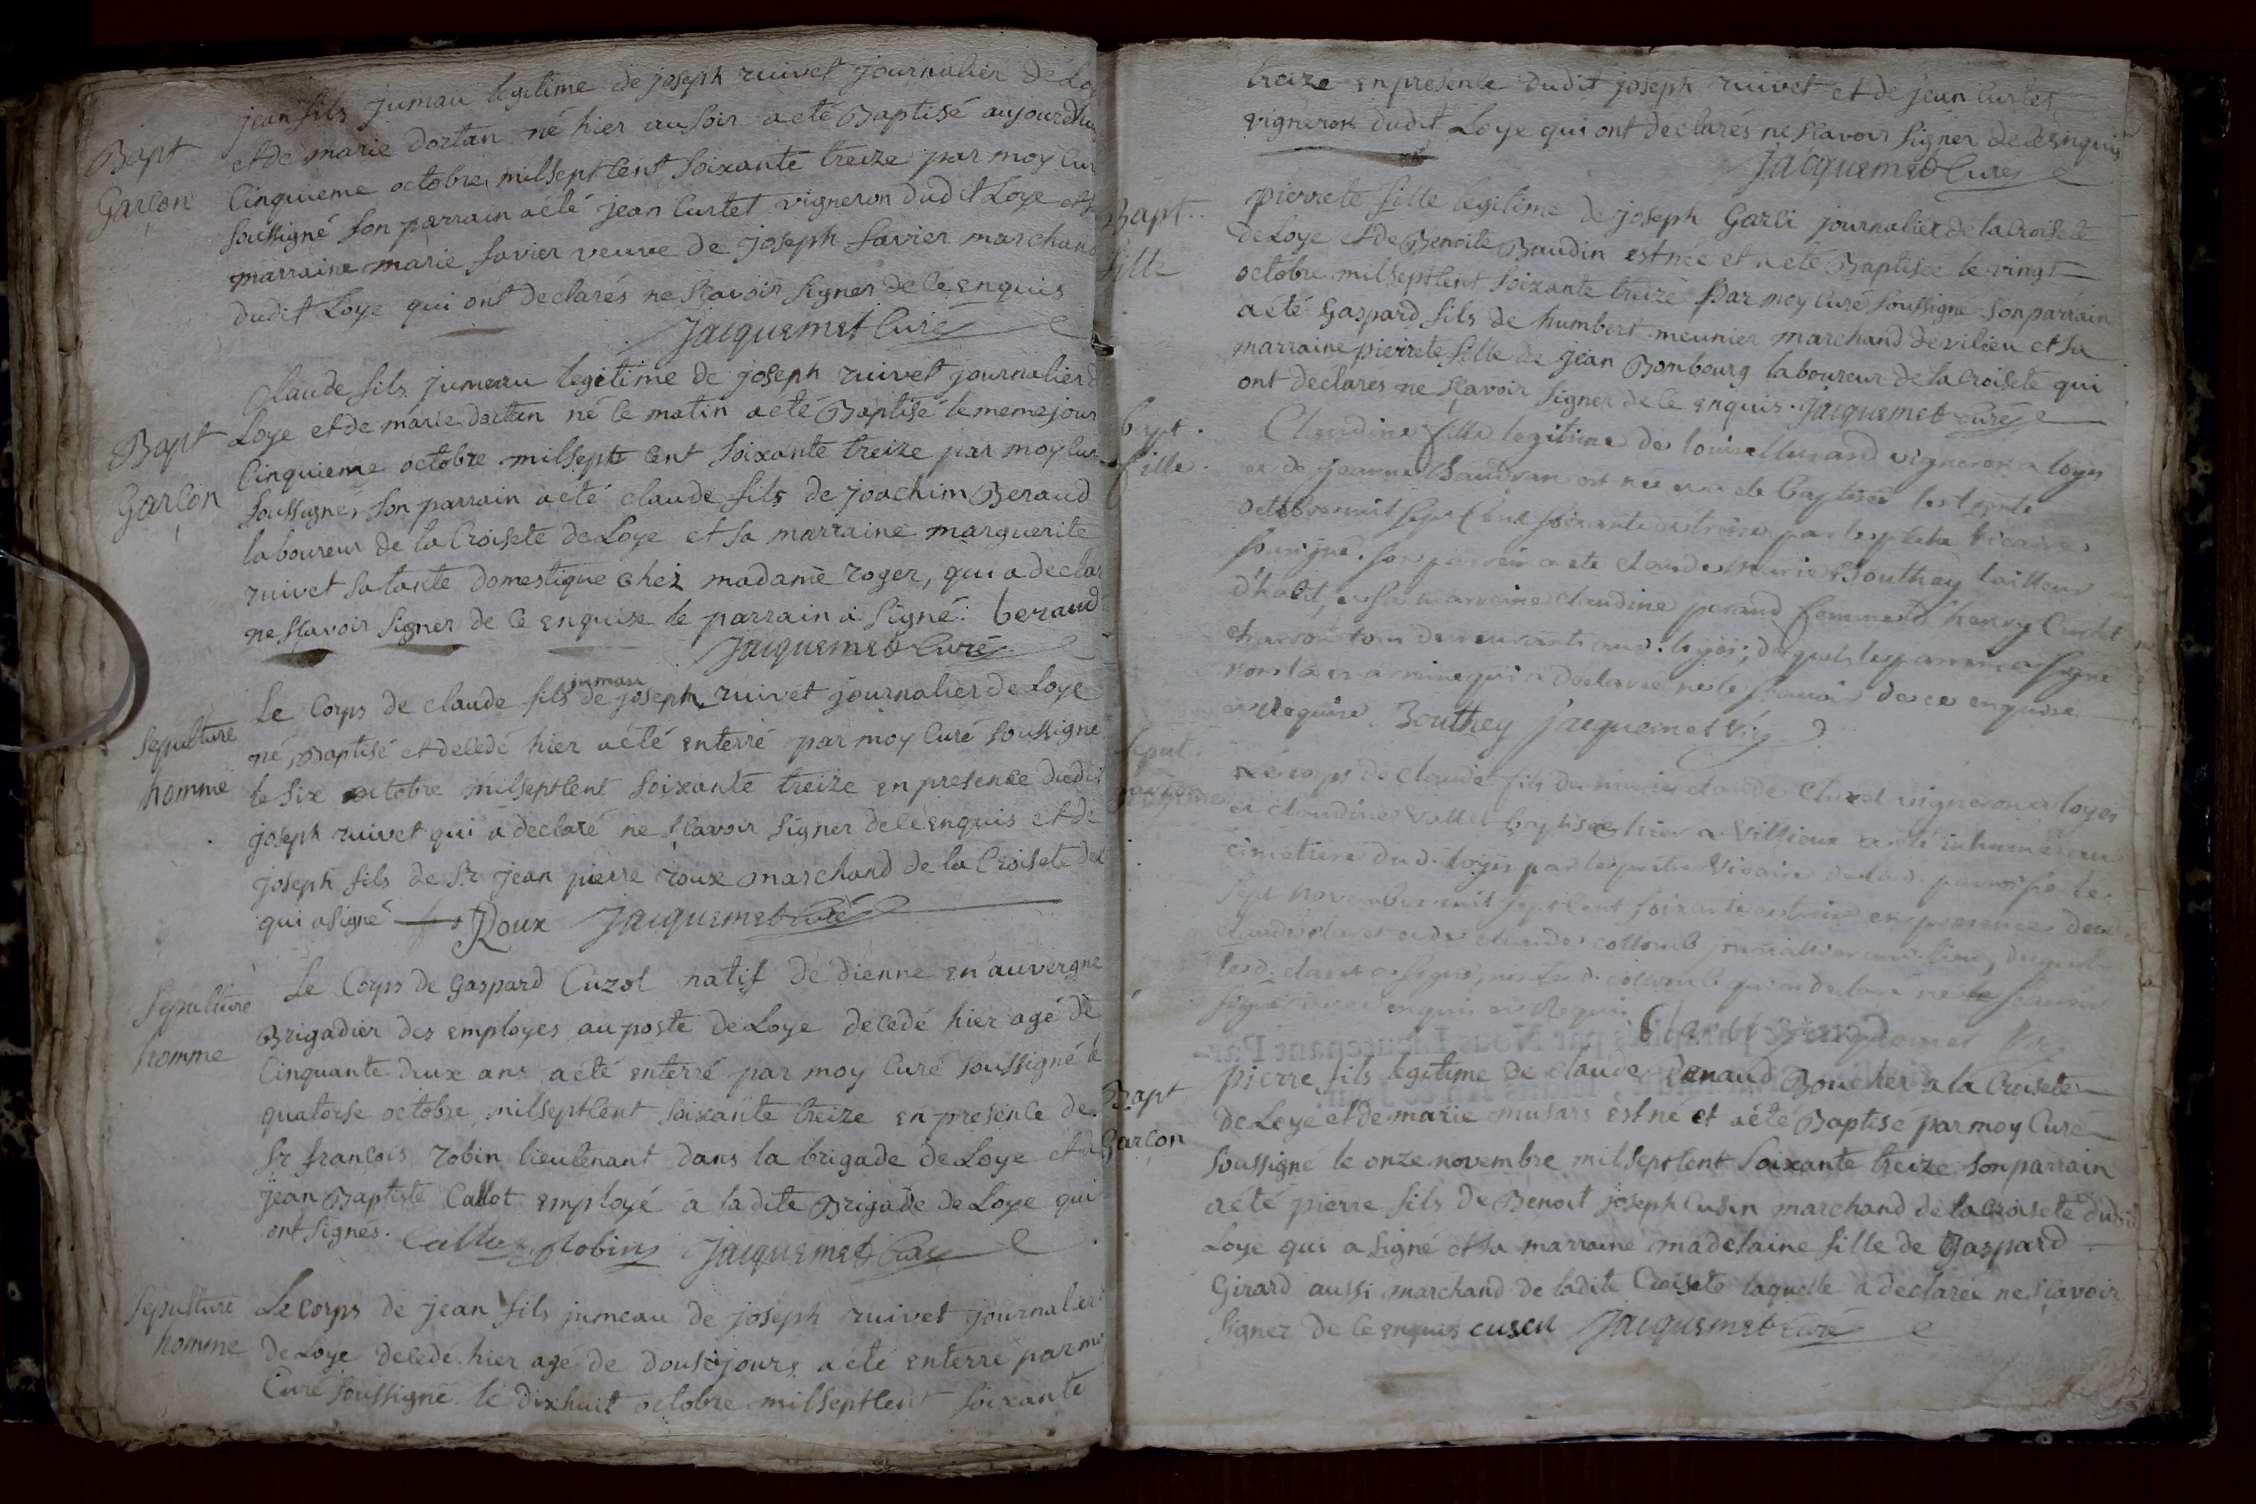 Bapt
Garçon
jean fils jumau legitime de joseph ruivet journalier de Lo
et de marie dortan né hier au soir a eté Baptisé aujourdhuy
Cinquieme octobre milseptcent soixante treize par moy Cur
soussigné son parrain a été jean Curtet vigneron dudit Loye et
marraine marie savier veuve de joseph savier marchand
dudit Loye qui ont declarés ne sçavoir signer de ce enquis
jacquemet Curé
Bapt
Garçon
Claude fils jumeau legitime de joseph ruivet journalier d
Loye et de marie dortan né ce matin a été Baptisé le meme jour
Cinquieme octobre milsept cent soixante treize par moy cur
soussigné, son parrain a eté claude fils de joachim Beraud
laboureur de la Croisete de Loye et sa marraine marguerite
ruivet sa tante domestique chez madame roger, qui a declar
ne sçavoir signer de ce enquise le parrain a signé. beraud
jacquemet Curé
Sepulture
homme
Le Corps de claude fils jumau de joseph ruivet journalier de Loye
né, Baptisé et decedé hier a été enterré par moy Curé soussigné
le six octobre milseptcent soixante treize en presence dudit
joseph ruivet qui a declaré ne sçavoir signer de ce enquis et de
joseph fils de Sr jean pierre roux marchand de la Croisete de
qui a signé Roux jacquemet Curé
Sepulture
homme
Le Corps de Gaspard Cuzol natif de dienne en auvergne
Brigadier des employes au poste de Loye decedé hier agé de
Cinquante deux ans a été enterré par moy Curé soussigné le
quatorse octobre milseptcent soixante treize en presence de
Sr françois robin lieutenant dans la brigade de Loye et de
jean Baptiste Callot employé a la dite Brigade de Loye qui
ont signés. Callot Robin jacquemet Curé
Sepulture
homme
Le corps de jean fils jumeau de joseph ruivet journalier
de Loye decedé hier agé de douse jours a eté enterré par mo
Curé soussigné le dixhuit octobre milseptcent soixante
treize en presence dudit joseph ruivet et de jean Curtet
vigneron dudit Loye qui ont declarés ne sçavoir signer de ce enquis
jacquemet Curé
Bapt.
fille
pierrete fille legitime de joseph Garci journalier de la Croisete
de Loye et de Benoite Baudin est née et a eté Baptisée le vingt
octobre milseptcent soixante treize par moy curé soussigné son parrain
a été Gaspard fils de humbert meunier marchand de vilieu et sa
marraine pierrete fille de jean Bombourg laboureur de la Croisete qui
ont declares ne sçavoir signer de ce enquis. jacquemet Curé
bapt.
fille.
Claudine fille legitime de vigneron a loyes
et de jeanne est née et a ete baptisée le trente
octobre mil sept cent soixante et treize par les vicaire
soussigné. son parrein a ete claude marie Bouthey tailleur
d'habit, et sa marreine claudine peraud femme d henry Curtet
charron tous demeurants aud. loyes; desquels le parrein a signé
non la marreine qui a declaré ne le sçavoir de ce enquise
et requise Bouthey jacquemet vic
sepul.
Le corps de Claude fils de claude Claret vigneron a loyes
et claudine Vallet baptisé hier a Villieux a eté inhumé au
cimetiere dud. loyes par le prêtre Vicaire de lad. parroisse le
sept novembre mil sept cent soixante et treize en presence dud
claude claret et de claude collomb
led. claret a signé, non led. collomb qui a declaré ne le sçavoir
enquis et requis Claret jacquemet Vic
Bapt
Garçon
pierre fils legitime de claude Renaud Boucher a la Croisete
de Loye et de marie musars est né et a été Baptisé par moy Curé
soussigné le onze novembre milseptcent soixante treize son parrain
a été pierre fils de Benoit joseph Cusin marchand de la Croisete dudit
Loye qui a signé et sa marraine madelaine fille de Gaspard
Girard aussi marchand de ladite Croisete laquelle a declarée ne sçavoir
signer de ce enquis cusin jacquemet Curé